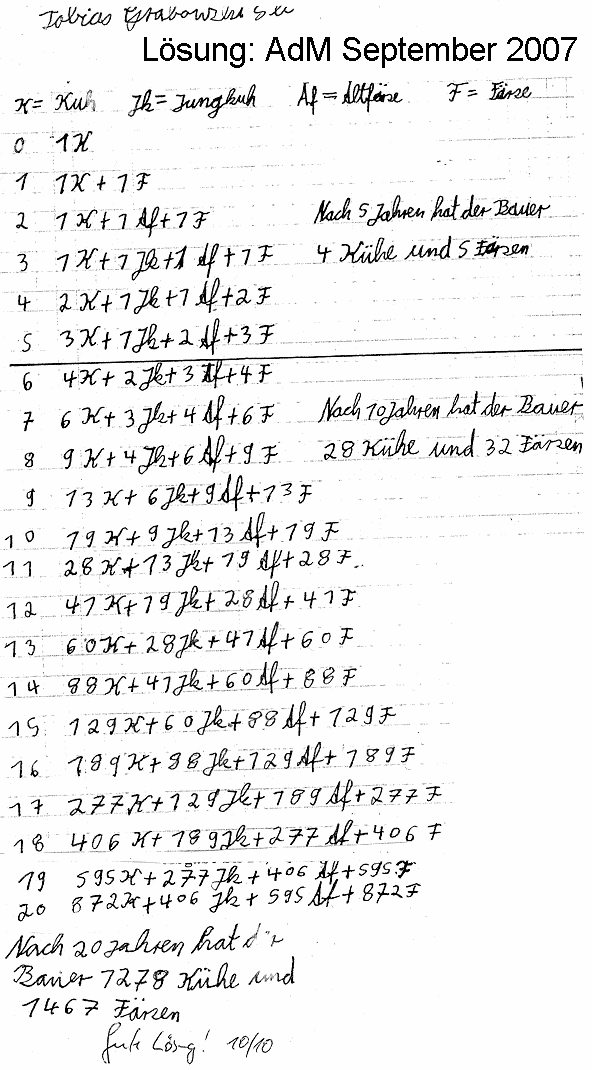 Tobias Grabowski
Lösung: AdM September 2007
K = Kuh Jk = Jungkuh Af = Altfärse F = Färse
0 1K
1 1K + 1F
2 1K + 1Af + 1F
Nach 5 Jahren hat der Bauer
3 1K + 1Jk + 1Af + 1F
4 Kühe und 5 Färsen
4 2K + 1Jk + 1Af + 2F
5 3K + 1Jk + 2Af + 3F
6 4K + 2Jk + 3Af + 4F
7 6K + 3Jk + 4Af + 6F
Nach 10 Jahren hat der Bauer
8 9K + 4Jk + 6Af + 9F
28 Kühe und 32 Färsen
9 13K + 6Jk + 9Af + 13F
10 19K + 9Jk + 13Af + 19F
11 28K + 13Jk + 19Af + 28F
12 41K + 19Jk + 28Af + 41F
13 60K + 28Jk + 41Af + 60F
14 88K + 41Jk + 60Af + 88F
15 129K + 60Jk + 88Af + 129F
16 189K + 88Jk + 129Af + 189F
17 277K + 129Jk + 189Af + 277F
18 406K + 189Jk + 277Af + 406F
19 595K + 277Jk + 406Af + 595F
20 872K + 406Jk + 595Af + 872F
Nach 20 Jahren hat der
Bauer 1278 Kühe und
1467 Färsen
Gute Lösung! 10/10